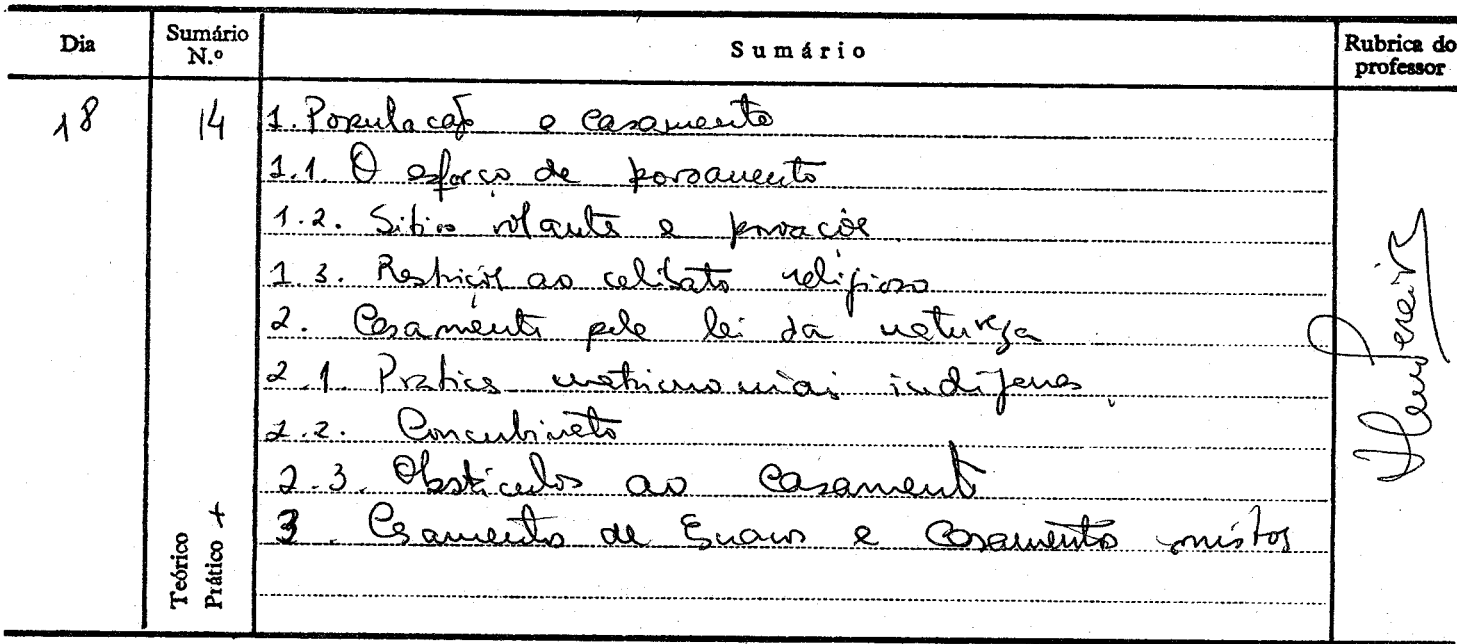 Dia
Sumário N.º
Sumário
Rubrica do professor
18
14
1. População e casamento
1.1. O esforço de povoamento
1.2. Sitios volantes e povoações
1.3. Restrições ao celibato religioso
2. Casamento pela lei da natureza
2.1. Praticas matrimoniais indígenas
2.2. Concubinato
2.3. Obstáculos ao casamento
3. Casamento de escravos e casamentos mistos
Teórico
Prático +